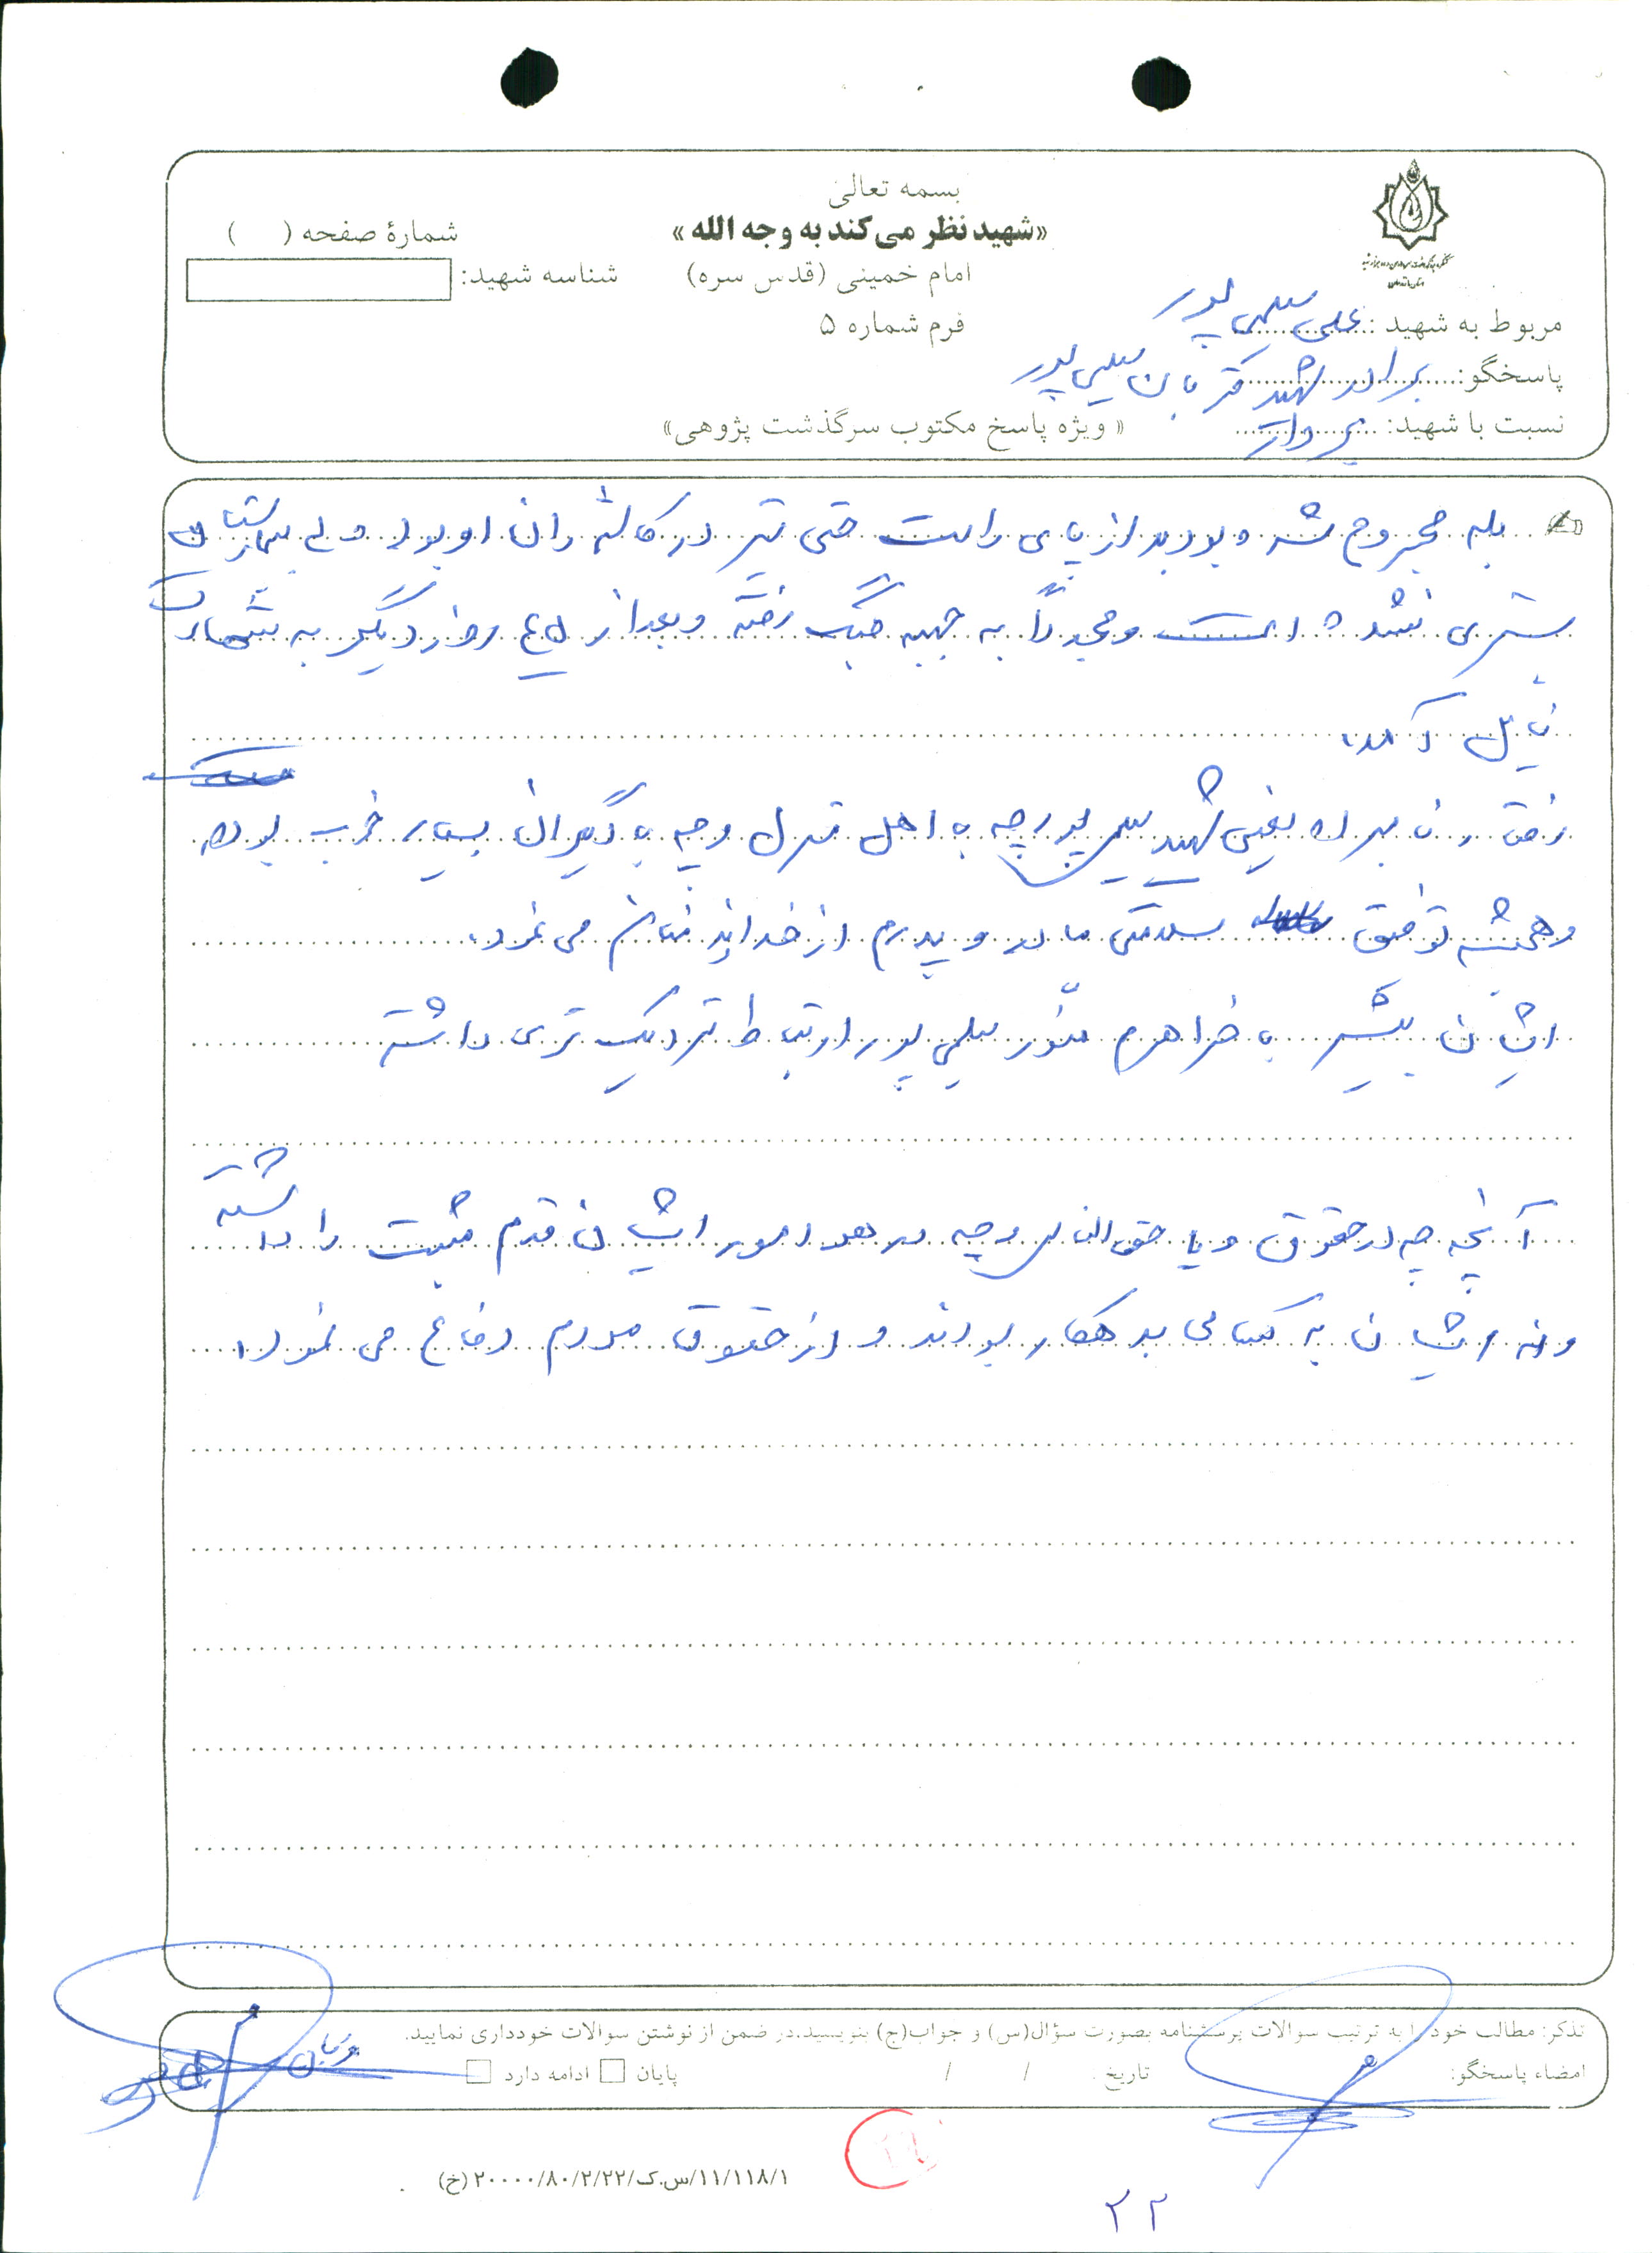 بسمه تعالی
«شهید نظر می‌کند به وجه الله»
امام خمینی (قدس سره)
فرم شماره ۵
شمارهٔ صفحه (    )
شناسه شهید:
مربوط به شهید: علی سلیمی پور
پاسخگو: برادر شهید قربان سلیمی پور
نسبت با شهید: برادر
« ویژه پاسخ مکتوب سرگذشت پژوهی»
بله مجروح شده بود بود از پای راست حتی تیر در کاله ران او بود ولی بیمارستان
بستری نشده است و مجدداً به جبهه جنگ رفته و بعد از ۴۵ روز دیگر به شهادت
نایل آمد.
رفتار ن برادر یعنی شهید سلیمی پور چه با اهل منزل و چه با دیگران بسیار خوب بوده
و همیشه توفیق سلامتی مادر و پدرم از خداوند می نمود.
ایشان بیشتر با خواهرم منور سلیمی پور ارتباط نزدیک تری داشته
آنچه چه در حقوق و یا حق الناس و چه در همه امور ایشان قدم مثبت را داشته
و نه ایشان به کسانی بدهکار بودند و از حقوق مردم دفاع می نمود.
تذکر: مطالب خود را به ترتیب سوالات پرسشنامه بصورت سؤال(س) و جواب(ج) بنویسید.در ضمن از نوشتن سوالات خودداری نمایید.
امضاء پاسخگو:
تاریخ    /    /
پایان
ادامه دارد
قربان
۲۰۰۰۰/۸۰/۲/۲۲/س.ک/۱۱/۱۱۸/۱ (خ)
۲۲